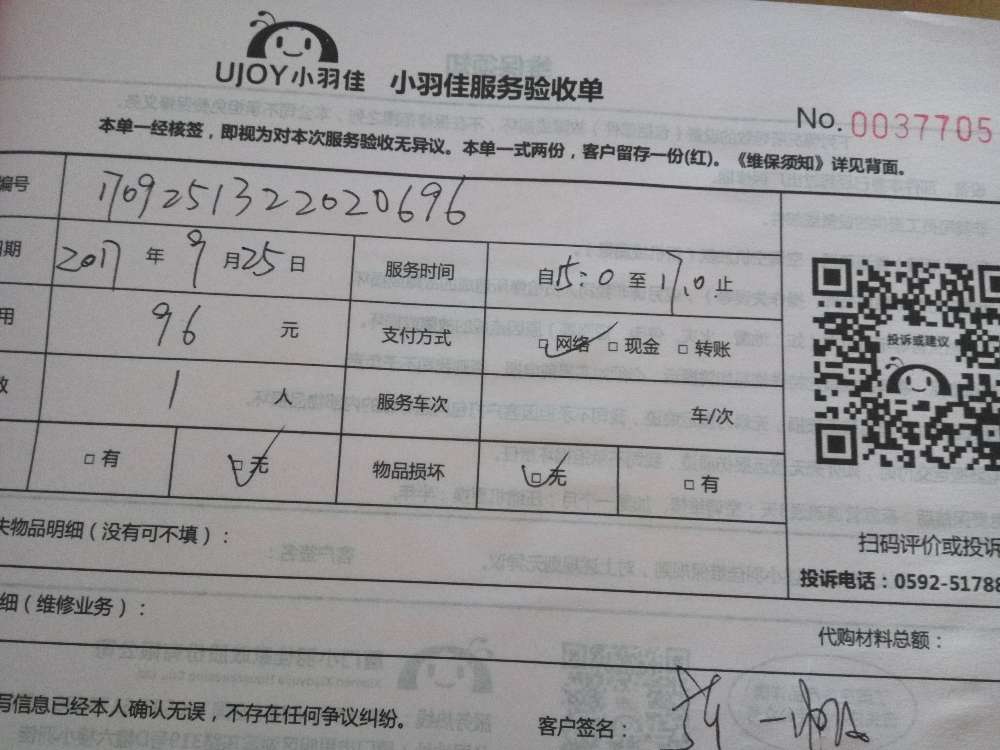 UJOY小羽佳 小羽佳服务验收单
No. 0037705
本单一经核签，即视为对本次服务验收无异议。本单一式两份，客户留存一份(红)。《维保须知》详见背面。
编号 1709251322020696
日期 2017 年 9 月 25 日 服务时间 自 15:0 至 17.0 止
用 96 元 支付方式 □网络 □现金 □转账
数 1 人 服务车次 车/次
□有 □无 物品损坏 □无 □有
投诉或建议
扫码评价或投诉
失物品明细（没有可不填）：
投诉电话：0592-51788
细（维修业务）：
代购材料总额：
写信息已经本人确认无误，不存在任何争议纠纷。
客户签名：